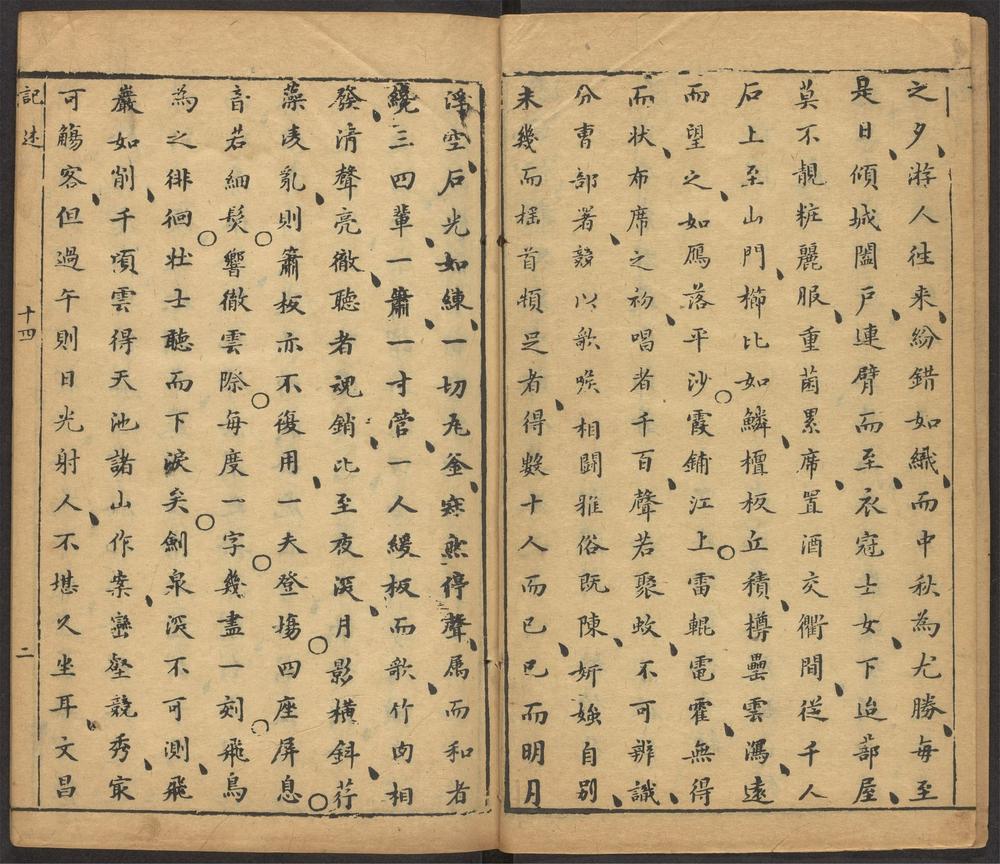 之夕游人往来紛錯如織而中秋為尤勝每至
是日傾城闔戸連臂而至衣冠士女下迨蔀屋
莫不靚粧麗服重茵累席置酒交衢間從千人
石上至山門櫛比如鱗檀板丘積樽罍雲瀉遠
而望之如鴈落平沙霞鋪江上雷輥電霍無得
而状布席之初唱者千百聲若聚蚊不可辨識
分曹部署競以歌喉相鬪雅俗既陳妍媸自别
未幾而摇首頓足者得數十人而已已而明月
浮空石光如練一切瓦釜寂然停聲属而和者
纔三四輩一簫一寸管一人緩板而歌竹肉相
發清聲亮徹聽者魂銷比至夜深月影橫斜荇
藻凌亂則簫板亦不復用一夫登場四座屏息
音若細髮響徹雲際每度一字幾盡一刻飛鳥
為之徘徊壮士聽而下淚矣劍泉深不可測飛
巖如削千頃雲得天池諸山作案巒壑競秀㝡
可觴客但過午則日光射人不堪久坐耳文昌
記述 十四 二